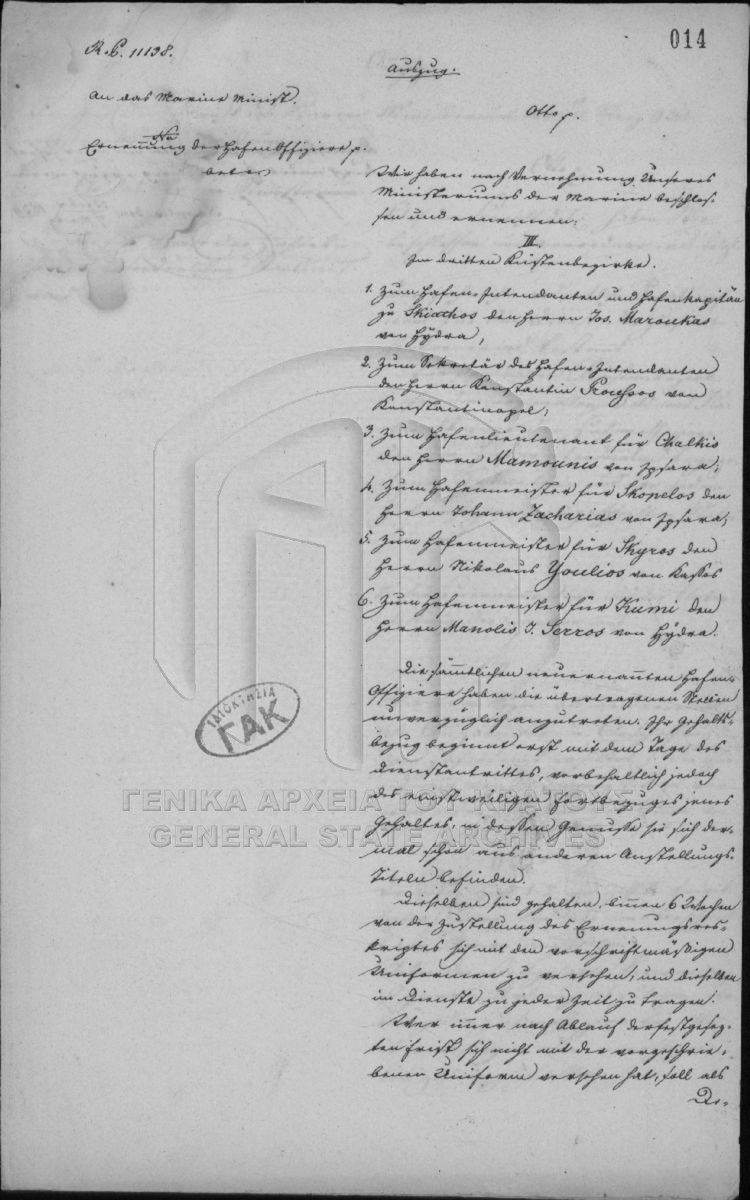 014
R. P. 11138.
Auszug.
An das Marine Minist.
Otto p.
Ernennung der Hafen Offiziere p.
betr.
Wir haben nach Vernehmung Unseres
Ministeriums der Marine beschlos-
sen und ernennen:
III.
Im dritten Küstenbezirke.
1. Zum Hafen-Intendanten und Hafenkapitän
zu Skiathos den Herrn Jos. Maroukas
von Hydra,
2. Zum Sekretär des Hafen-Intendanten
den Herrn Konstantin Proussos von
Konstantinopel;
3. Zum Hafenlieutenant für Chalkis
den Herrn Mamounis von Ipsara;
4. Zum Hafenmeister für Skopelos den
Herrn Johann Zacharias von Ipsara;
5. Zum Hafenmeister für Skyros den
Herrn Nikolaus Youlios von Kassos
6. Zum Hafenmeister für Kumi den
Herrn Manolis J. Serros von Hydra.
Die sämmtlichen neuernannten Hafen-
Offiziere haben die übertragenen Stellen
unverzüglich anzutreten. Ihr Gehalts-
bezug beginnt erst mit dem Tage des
Dienstantrittes, vorbehaltlich jedoch
des einstweiligen Fortbezuges jenes
Gehaltes, in dessen Genusse sie sich der-
mal schon aus anderen Anstellungs-
Titeln befinden.
Dieselben sind gehalten, binnen 6 Wochen
von der Zustellung des Ernennungsres-
kriptes sich mit den vorschriftmäßigen
Uniformen zu versehen, und dieselben
im Dienste zu jeder Zeit zu tragen.
Wer immer nach Ablauf der festgesez-
ten Frist sich nicht mit der vorgeschrie-
benen Uniform versehen hat, soll als
De-
ΙΔΙΟΚΤΗΣΙΑ
ΓΑΚ
ΓΕΝΙΚΑ ΑΡΧΕΙΑ ΤΟΥ ΚΡΑΤΟΥΣ
GENERAL STATE ARCHIVES